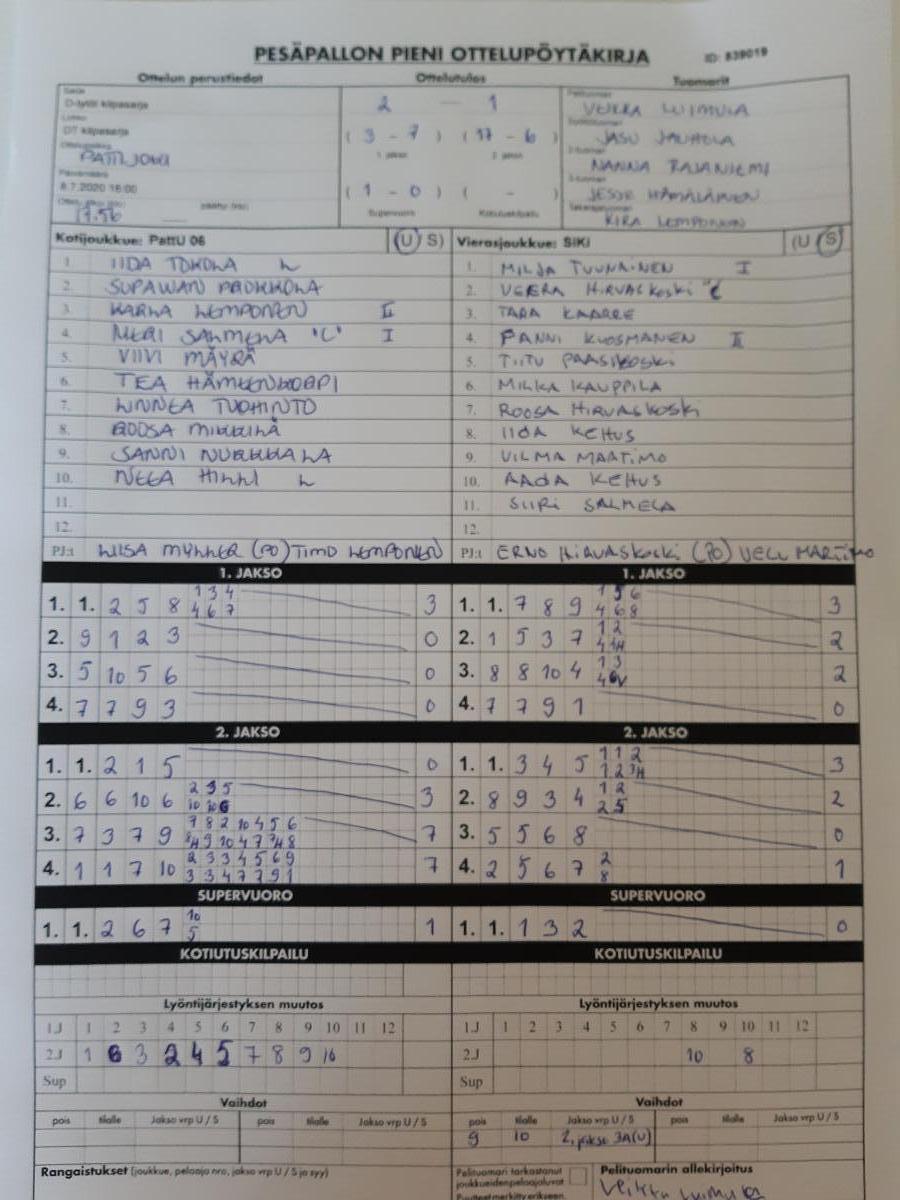 PESÄPALLON PIENI OTTELUPÖYTÄKIRJA
ID: 839019
Ottelun perustiedot
Ottelutulos
Tuomarit
Sarja
D-tytöt kilpasarja
Lohko
DT kilpasarja
PATTIJOKI
8.7.2020 18:00
17.56
2 — 1
( 3 - 7 ) ( 17 - 6 )
1. jakso 2. jakso
( 1 - 0 ) ( - )
Supervuoro Kotiutuskilpailu
VEIKKA LUIMULA
JASU JAUHOLA
NANNA RAJANIEMI
JESSE HÄMÄLÄINEN
KIRA LEMPONEN
Kotijoukkue: PattU 06 (U S)
1. IIDA TOKOLA L
2. SUPAWAN
3. KARLA LEMPONEN II
4. MERI SALMELA "C" I
5. VIIVI MÄYRÄ
6. TEA
7. LINNEA TUOHINTO
8. ROOSA
9. SANNI NURKKALA
10. NEEA L
11.
12.
PJ:t (PO) TIMO LEMPONEN
Vierasjoukkue: SiKi (U S)
1. MILJA TUUNAINEN I
2. VEERA HIRVASKOSKI "C
3. TARA KAARRE
4. PANNI KUOSMANEN II
5. TIITU PAASIKOSKI
6. MILKA KAUPPILA
7. ROOSA HIRVASKOSKI
8. IIDA KEHUS
9. VILMA MAATIMO
10. AADA KEHUS
11. SIIRI SALMELA
12.
PJ:t ERNO HIRVASKOSKI (PO) VELI MARTIMO
1. JAKSO
1. 1. 2 5 8 1 3 4 3
4 6 7
2. 9 1 2 3 0
3. 5 10 5 6 0
4. 7 7 9 3 0
1. JAKSO
1. 1. 7 8 9 1 5 6 3
4 6 8
2. 1 5 3 7 1 2 2
3. 8 8 10 4 1 3 2
4. 7 7 9 1 0
2. JAKSO
1. 1. 2 1 5 0
2. 6 6 10 6 2 3 5 3
10 10 6
3. 7 3 7 9 7 8 2 10 4 5 6 7
4. 1 1 7 10 2 3 3 4 5 6 9 7
3 3 4 7 7 9 1
2. JAKSO
1. 1. 3 4 5 1 1 2 3
1 2 3H
2. 8 9 3 4 1 2 2
2 5
3. 5 5 6 8 0
4. 2 5 6 7 2 1
8
SUPERVUORO
1. 1. 2 6 7 10 1
5
SUPERVUORO
1. 1. 1 3 2 0
KOTIUTUSKILPAILU
KOTIUTUSKILPAILU
Lyöntijärjestyksen muutos
1.J 1 2 3 4 5 6 7 8 9 10 11 12
2.J 1 6 3 2 4 5 7 8 9 10
Sup
Lyöntijärjestyksen muutos
1.J 1 2 3 4 5 6 7 8 9 10 11 12
2.J 10 8
Sup
Vaihdot
pois tilalle Jakso vrp U / S pois tilalle Jakso vrp U / S
Vaihdot
pois tilalle Jakso vrp U / S pois tilalle Jakso vrp U / S
9 10 2. jakso 3A(U)
Rangaistukset (joukkue, pelaaja nro, jakso vrp U / S ja syy)
Pelituomari tarkastanut
joukkueidenpelaajaluvat
Puutteet merkitty erikseen.
Pelituomarin allekirjoitus